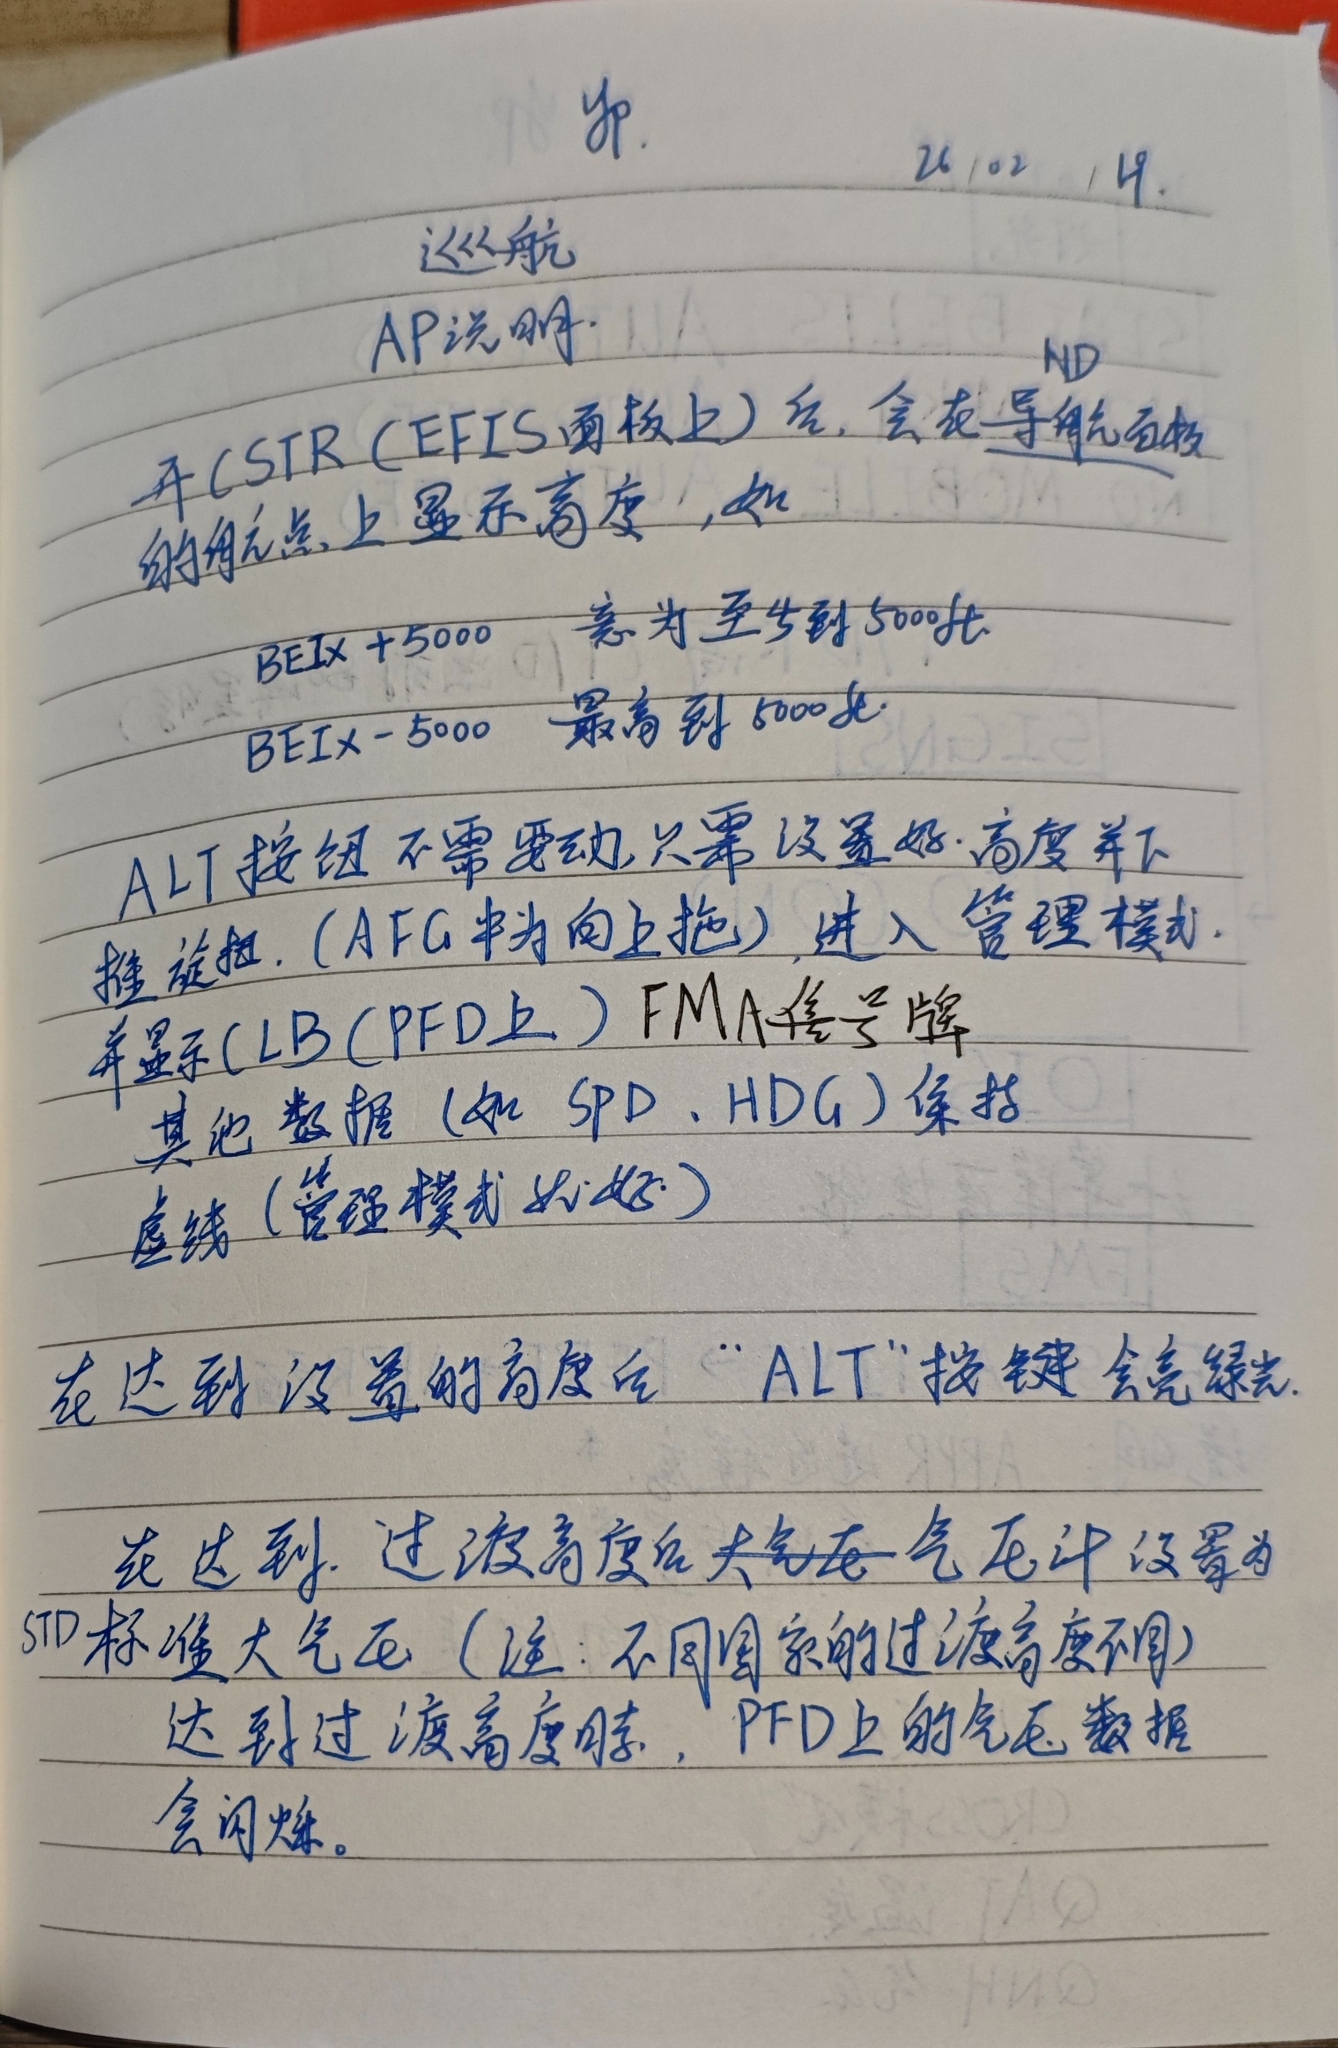 yp.
26/02/14.
巡航
AP说明.
ND
开CSTR(EFIS面板上)后,会在导航面板
的航点上显示高度,如
BEIX+5000 意为至少到5000ft.
BEIX-5000 最高到5000ft.
ALT按钮不需要动,只需设置好.高度并下
推旋扭.(AFG中为向上拖),进入管理模式.
并显示CLB(PFD上)FMA信号牌
其他数据(如SPD、HDG)保持
虚线(管理模式就好)
在达到设置的高度后"ALT"按键会亮绿光.
在达到.过渡高度后大气压气压计设置为
STD标准大气压(注:不同国家的过渡高度不同)
达到过渡高度时,PFD上的气压数据
会闪烁。